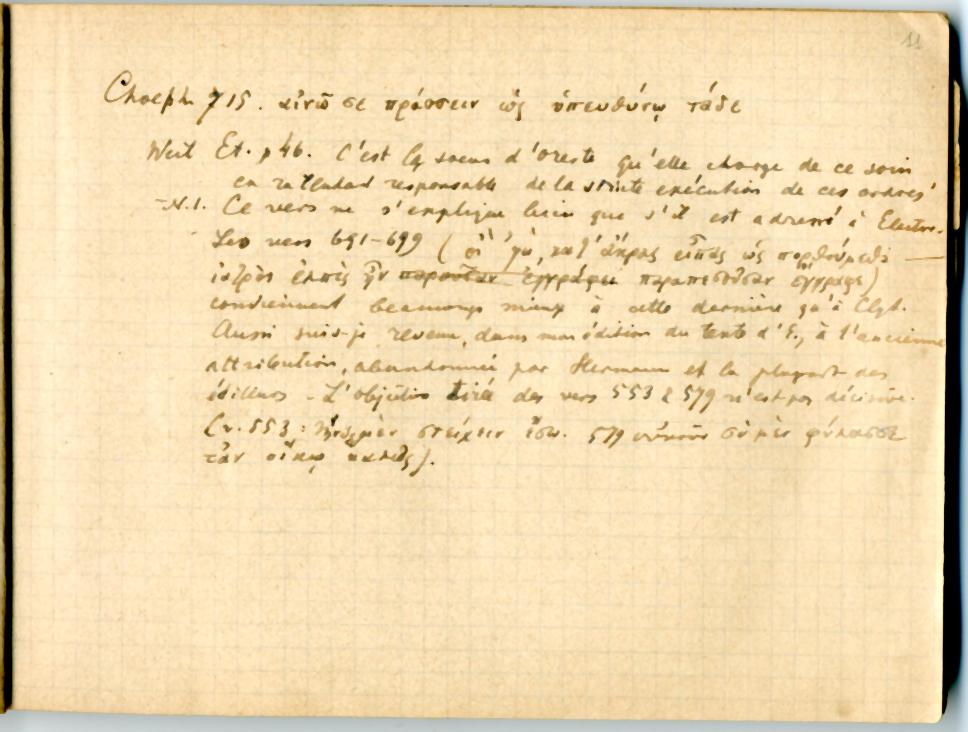 11
Choeph 715. αἰνῶ σε πράσσειν ὡς ὑπευθύνῳ τάδε
Weil Et. p 46. C'est la soeur d'Oreste qu'elle charge de ce soin
en la rendant responsable de la stricte exécution de ces ordres'
- N.1. Ce vers ne s'explique bien que s'il est adressé à Electre.
Les vers 691-699 (οἲ 'γώ, κατ' ἄκρας εἶπας ὡς πορθούμεθα —
ἰατρὸς ἐλπὶς ἦν παροῦσαν ἐγγράφει παραπεσοῦσαν ἐγγράφε)
conviennent beaucoup mieux à cette dernière qu'à Clyt.
Aussi suis-je revenu, dans mon édition du texte d'E., à l'ancienne
attribution, abandonnée par Hermann et la plupart des
éditeurs - L'objection tirée des vers 553 & 579 n'est pas décisive.
(v. 553: τήνδε μὲν στείχειν ἔσω. 579 σὺ μὲν φύλασσε
τἀν οἴκῳ καλῶς).